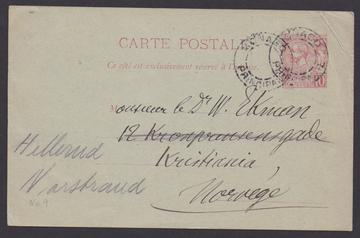 CARTE POSTALE
Ce côté est exclusivement réservé à l'adresse.
MONACO
PRINCIPAUTÉ
Monsieur le Dr W. Ekman
12 Kronprinsensgade
Kristiania,
Norvège
Hellerud
Narstrand
No 9